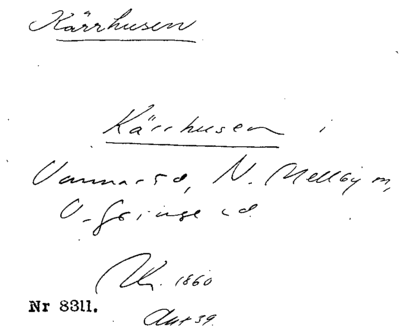 Kärrhusen
Kärrhusen i
Vannaröd, N. Mellby m,
V. Göinge hd
1860
Nr 8311.